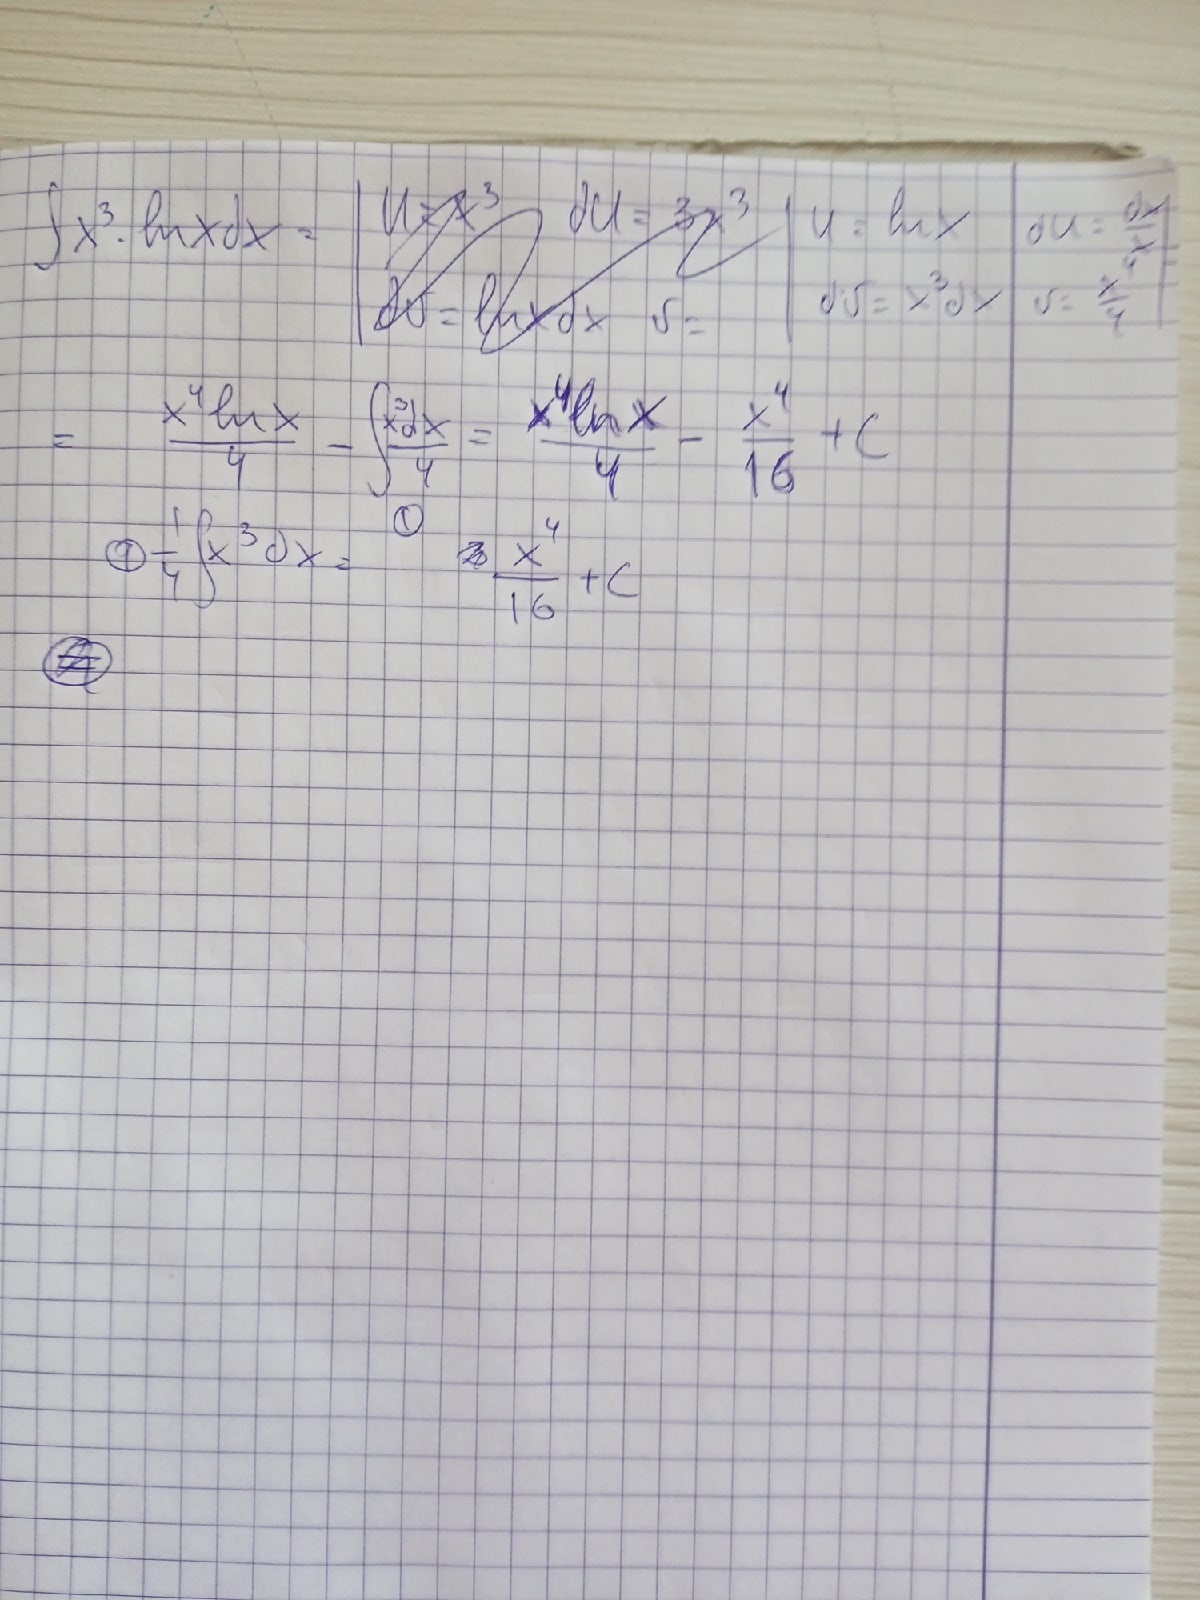 ∫x³·lnxdx = | U = x³ dU = 3x³ | U = lnx | dU = dx/x |
| dv = lnxdx v = | dv = x³dx | v = x⁴/4 |
= x⁴lnx/4 - ∫x³dx/4 = x⁴lnx/4 - x⁴/16 + C
①
① 1/4 ∫x³dx = x⁴/16 + C